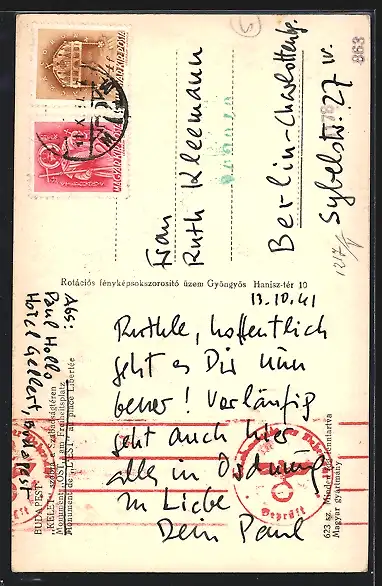 Frau
Ruth Kleemann
Berlin-Charlottenbg.
Sybelstr. 27 IV.
863
1217/V
MAGYAR KIR. POSTA
MAGYAR KIR. POSTA
Rotációs fényképsokszorosító üzem Gyöngyös Hanisz-tér 10
13.10.41
Ruthle, hoffentlich
geht es Dir nun
besser! Vorläufig
geht auch hier
alles in Ordnung
In Liebe
Dein Paul
Abs:
Paul Hollo
Hotel Gellert, Budapest
BUDAPEST
"KELET" szobor a Szabadságtéren
Monument "OST", am Freiheitsplatz
Monument de "L'EST" au place Libertée
Geprüft
623 sz. Minden jog fenntartva
Magyar gyártmány